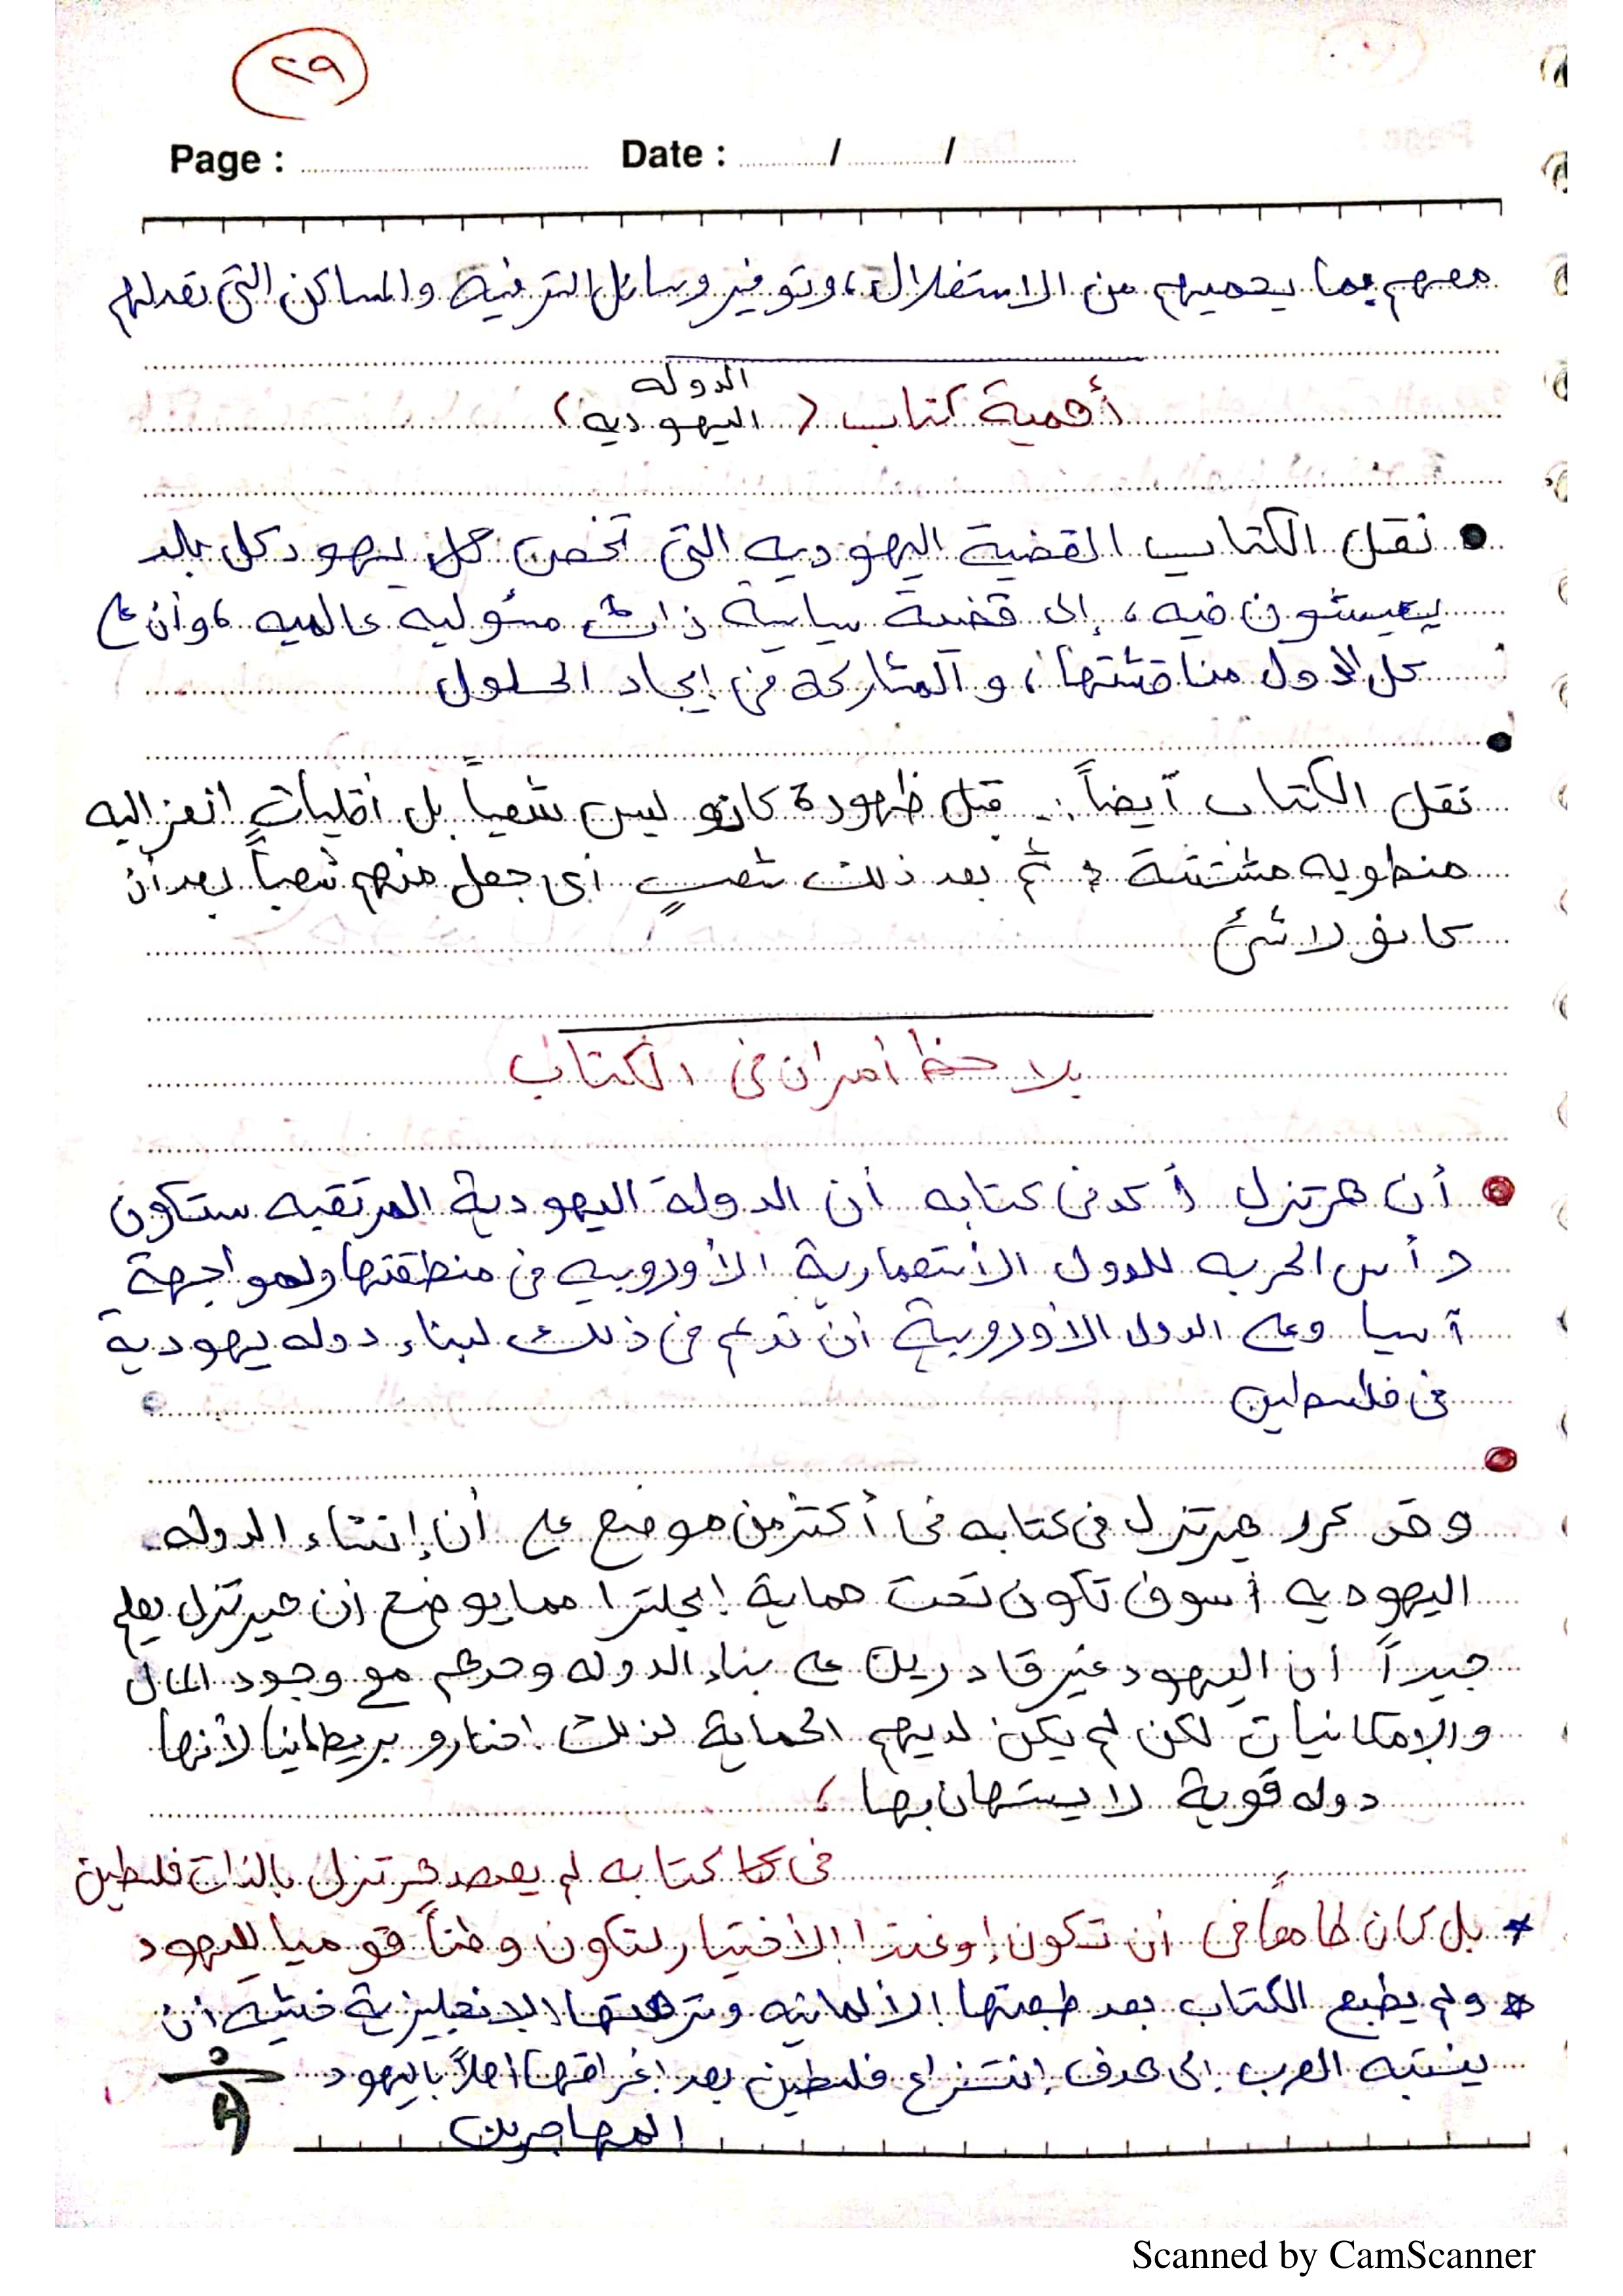 ٢٩
Page : Date : / /
معهم بما يحميهم من الاستغلال، وتوفير وسائل الترفية والمساكن التى تعدلهم
أهمية كتاب (الدوله اليهوديه)
● نقل الكتاب القضية اليهوديه التى تخص كل يهود كل بلد
يعيشون فيه، إلى قضية سياسية ذات مسؤليه عالميه، وأن على
كل الدول مناقشتها، و المشاركة فى إيجاد الحلول
●
نقل الكتاب أيضاً :- قبل ظهورة كانو ليس شعباً بل أقليات انعزاليه
منطويه مشتتة ثم بعد ذلك شعبٍ أى جعل منهم شعباً بعد أن
كانو لا شئ
يلاحظ أمران فى الكتاب
● أن هرتزل أكد فى كتابه أن الدولة اليهودية المرتقبه ستكون
رأس الحربه للدول الأستعمارية الأوروبيه فى منطقتها ولمواجهة
آسيا وعلى الدول الأوروبية أن تدعم فى ذلك لبناء دوله يهودية
فى فلسطين
●
وقد كرر هيرتزل فى كتابه فى أكثر من موضع على أن إنشاء الدوله
اليهوديه سوف تكون تحت حماية إنجلترا مما يوضح أن هيرتزل يعلم
جيداً أن اليهود غير قادرين على بناء الدوله وحدهم مع وجود المال
والإمكانيات لكن لم يكن لديهم الحماية لذلك اختارو بريطانيا لأنها
دوله قوية لا يستهان بها ،
فى كتابه لم يقصد هرتزل بالذات فلسطين
* بل كان طامعاً فى أن تكون إوغندا الأختيار لتكون وطناً قوميا لليهود
* ولم يطبع الكتاب بعد طبعتها الألمانيه وترجمتها الإنجليزية خشية أن
ينتبه العرب إلى هدف إنتزاع فلسطين بعد إغراقها أهلاً باليهود
المهاجرين
Scanned by CamScanner